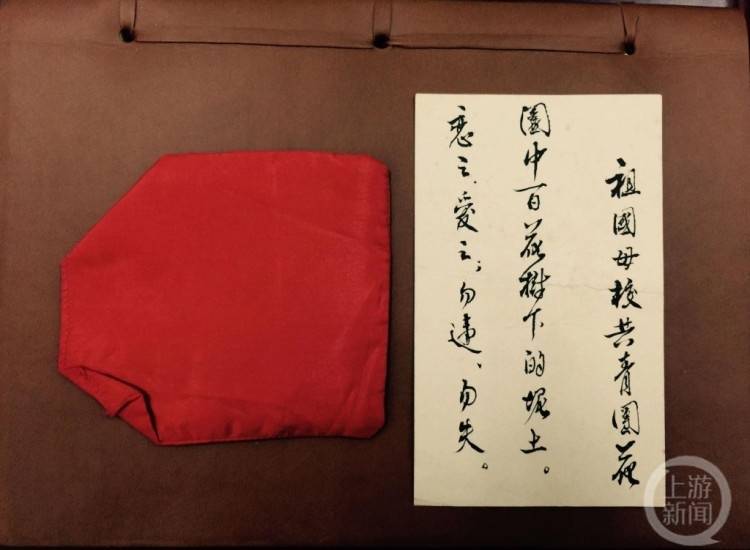 祖國母校共青園花
園中百花樹下的坭土。
恋之、愛之；勿違、勿失。
上游新闻